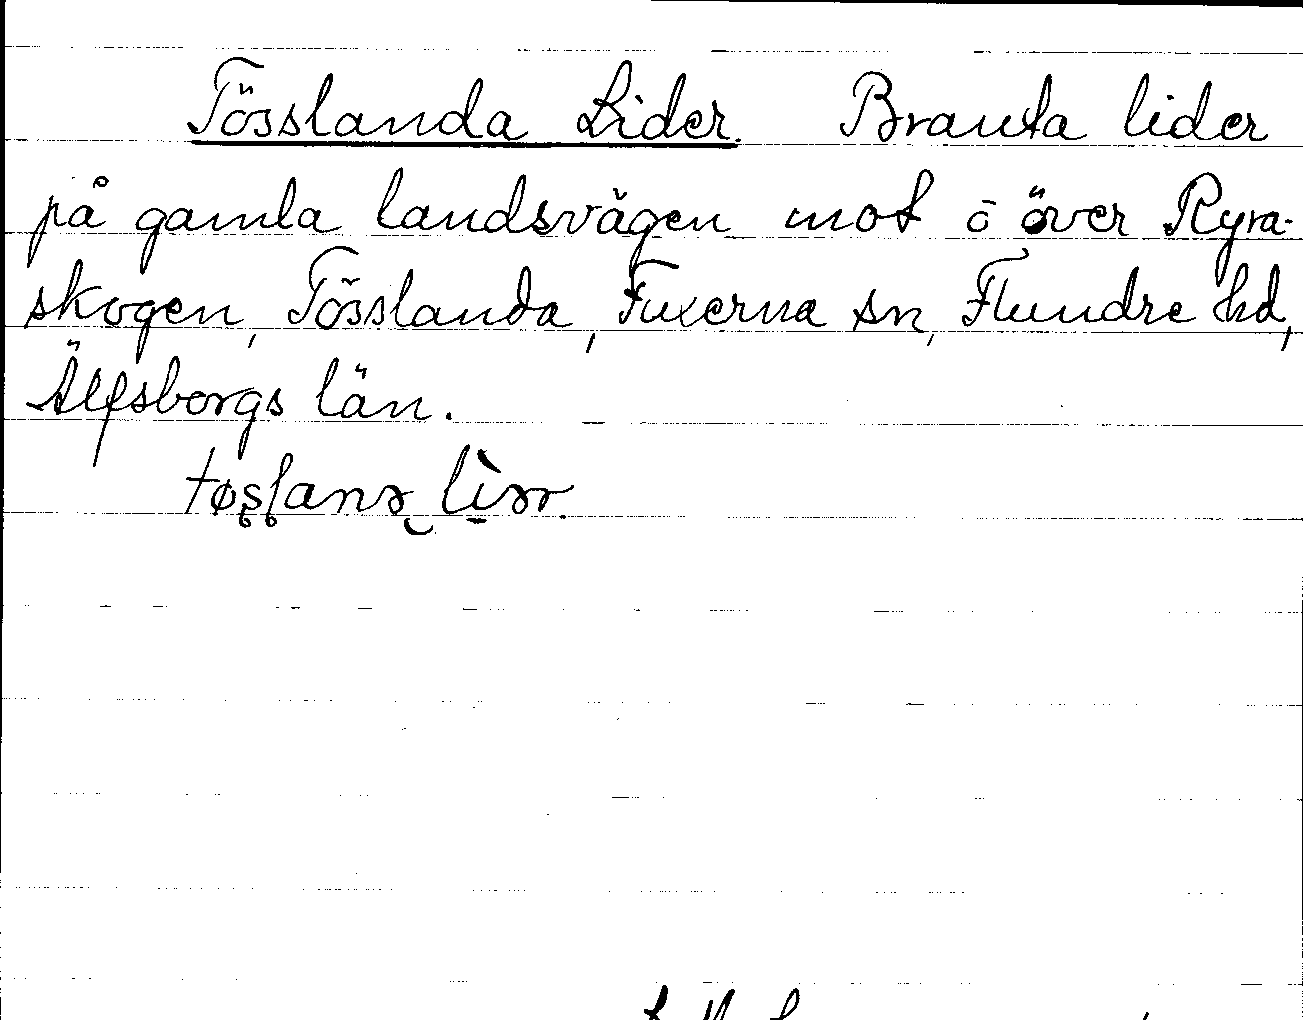 Tösslanda Lider. Branta lider
på gamla landsvägen mot ö över Ryra-
skogen, Tösslanda, Fuxerna sn, Flundre hd,
Älfsborgs län.